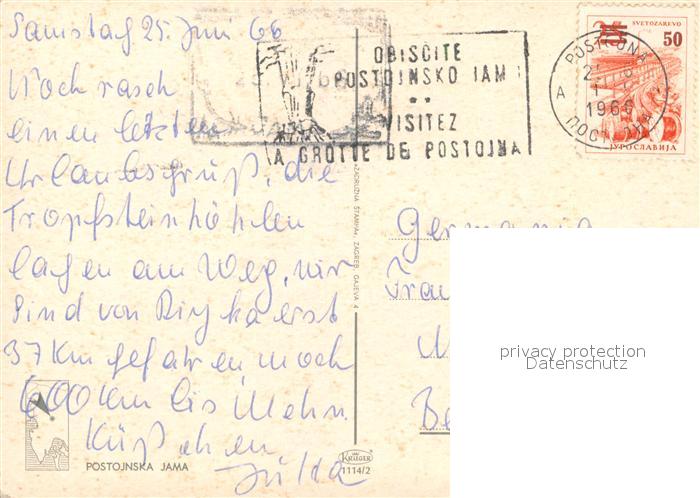 Samstag 25. Juni 66
Noch rasch
einen letzten
Urlaubsgruß, die
Tropfsteinhöhlen
lagen am Weg, wir
sind von Rijeka erst
37 Km gefahren, noch
600 Km bis
Küßchen
Jutta
POSTOJNSKA JAMA
OBIŠČITE
POSTOJNSKO JAMO
VISITEZ
LA GROTTE DE POSTOJNA
SVETOZAREVO
25
50
ЈУГОСЛАВИЈА
POSTOJNA
A
1966
ПОСТОЈНА
»ZADRUŽNA ŠTAMPA«, ZAGREB, GAJEVA 4
KRIEGER
1114/2
Germania
Frau
Be
privacy protection
Datenschutz